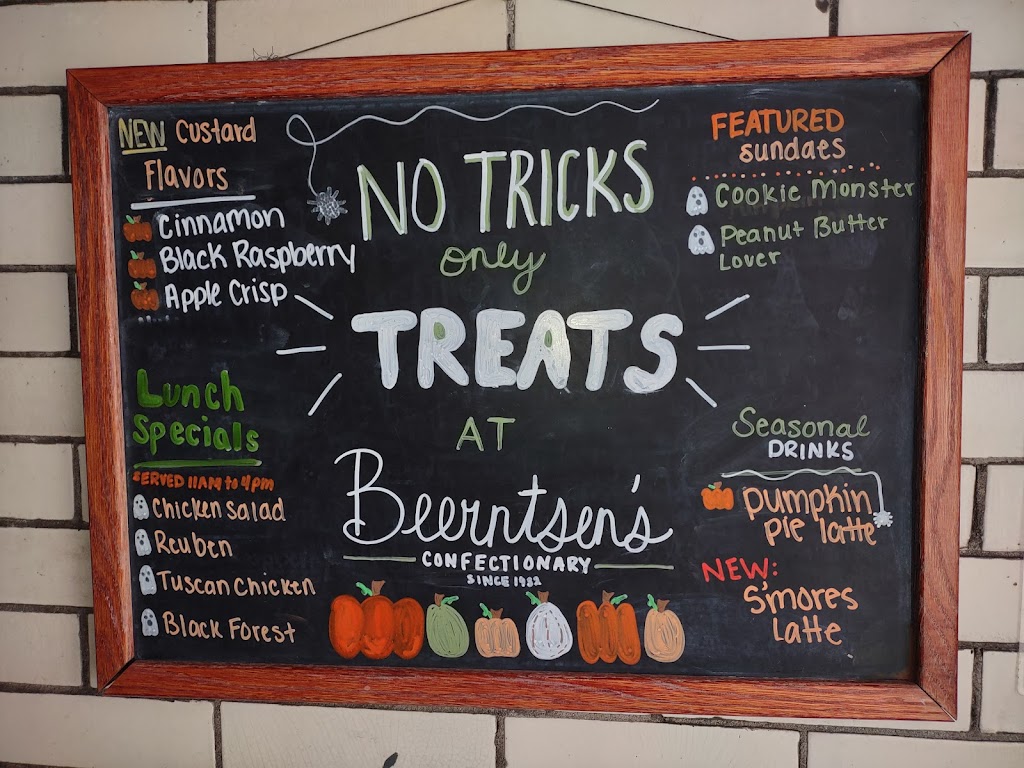 NEW Custard
Flavors
Cinnamon
Black Raspberry
Apple Crisp
Lunch
Specials
SERVED 11AM to 4pm
Chicken Salad
Reuben
Tuscan Chicken
Black Forest
NO TRICKS
only
TREATS
AT
Beerntsen's
CONFECTIONARY
SINCE 1932
FEATURED
sundaes
Cookie Monster
Peanut Butter
Lover
Seasonal
DRINKS
pumpkin
pie latte
NEW:
S'mores
Latte